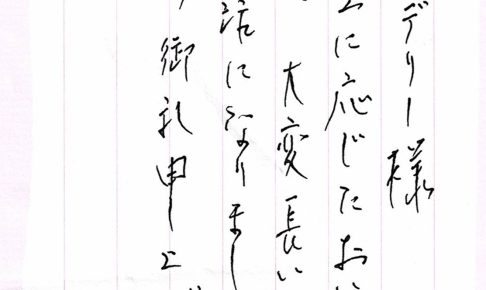 デリー様
に応じたお
大変長い
話になりまし
御礼申上